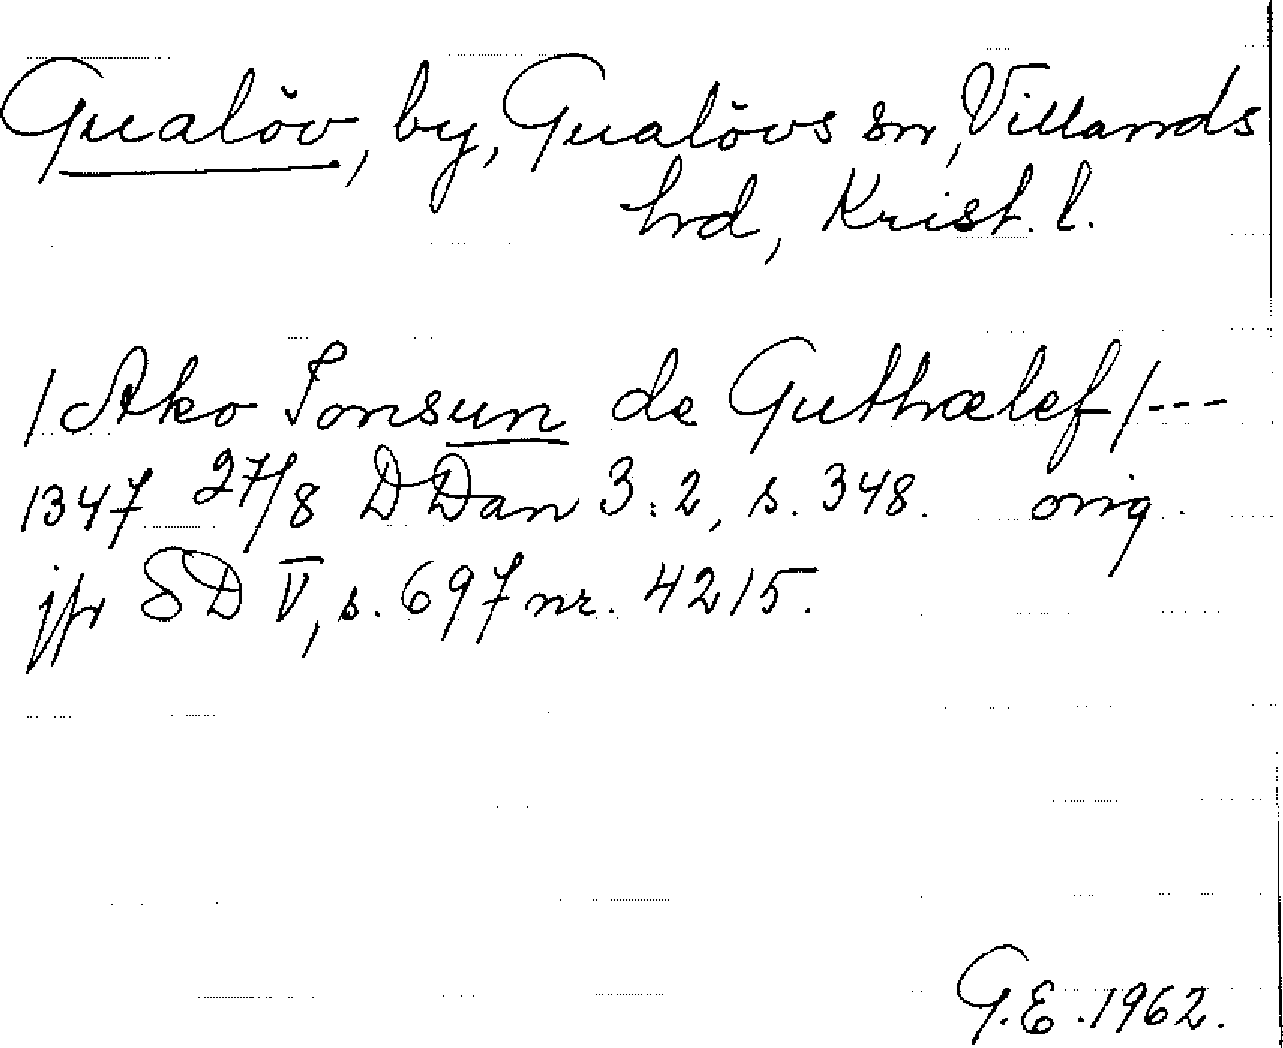 Gualöv, by, Gualövs sn, Villands
hrd, Krist. l.
/Ako Jonsun de Guthælef/---
1347 27/8 DDan 3:2, s. 348. orig.
jfr SD V, s. 697 nr. 4215.
G.E. 1962.